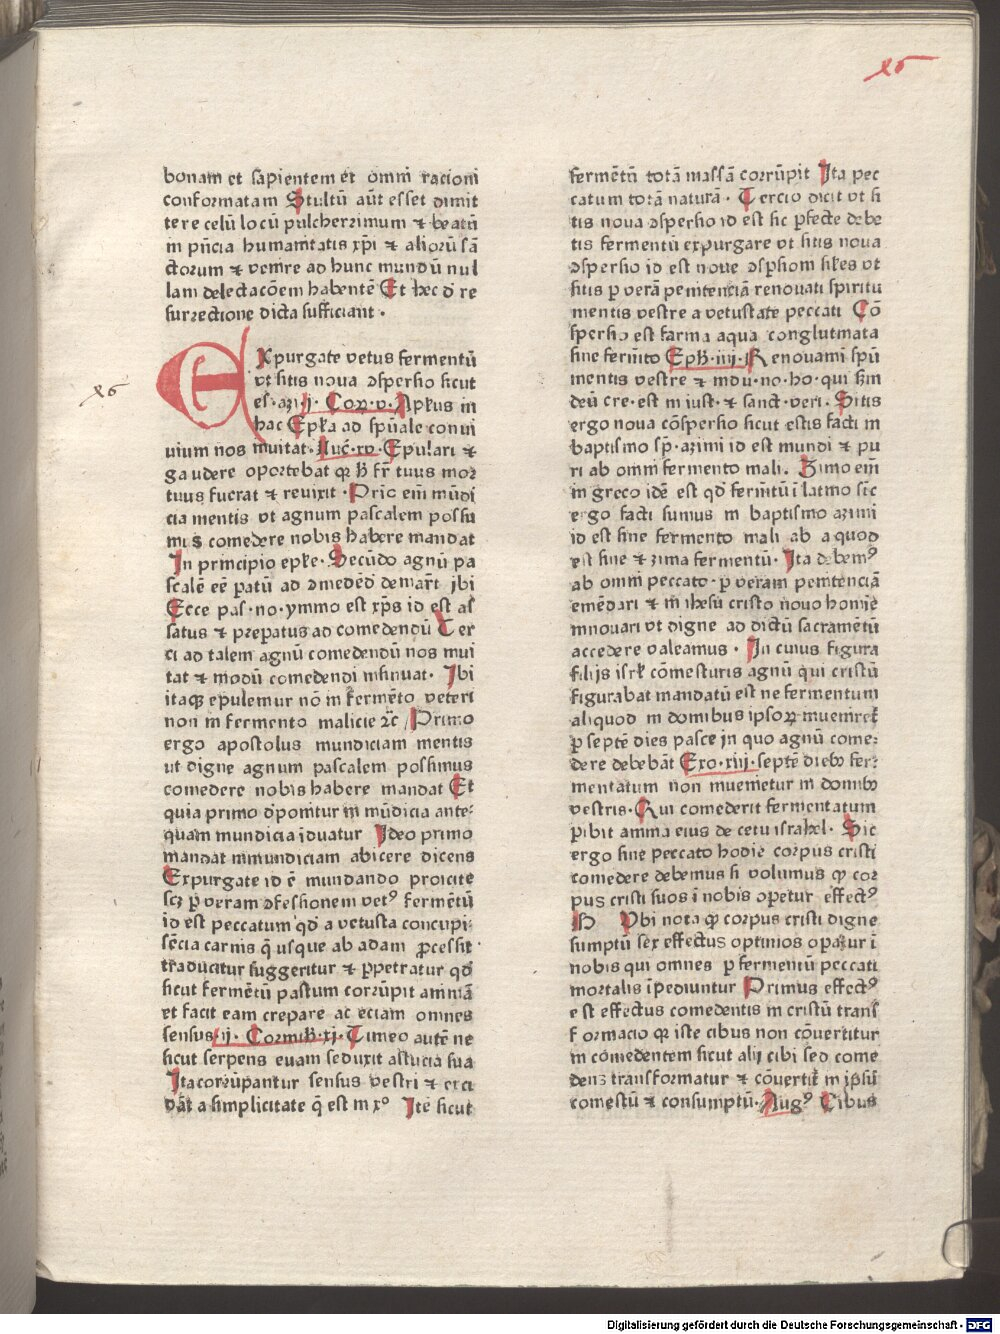 x5
bonam et sapientem et omni racioni
conformatam Stultū aūt esset dimit
tere celū locū pulcherrimum ⁊ beatū
in pn̄cia humanitatis xp̄i ⁊ aliorū sā
ctorum ⁊ venire ad hunc mundū nul
lam delectacōem habentē Et hec d̄ re
surrectione dicta sufficiant .
x6
EXpurgate vetus fermentū
vt sitis noua ↄspersio sicut
es·azi·j· Coꝝ·v·Apłus in
hac Epła ad spūale conui
uium nos inuitat·Luc̄·xv·Epulari ⁊
gaudere oportebat qꝛ
tuus mor
tuus fuerat ⁊ reuixit ·Prīo em̄ mūdi
cia mentis vt agnum pascalem possu
mus comedere nobis habere mandat
In principio epłe·Secūdo agnū pa
scalē eē paratū ad ↄmedēd
jbi
Ecce pas·no·ymmo est xp̄s id est as
satus ⁊ preparatus ad comedendū Ter
ci ad talem agnū comedendū nos inui
tat ⁊ modū comedendi insinuat· Jbi
itaqꝫ epulemur nō in fermēto veteri
non in fermento malicie ⁊c̄ Primo
ergo apostolus mundiciam mentis
ut digne agnum pascalem possimus
comedere nobis habere mandat Et
quia primo d̓ponitur inmūdicia ante⸗
quam mundicia īduatur Ideo primo
mandat inmundiciam abicere dicens
Expurgate id ē mundando proicite
scꝫ ꝑ veram ↄfessionem vetꝰ fermētū
id est peccatum qd̓ a vetusta concupi⸗
scēcia carnis q̄ usque ab adam ꝓcessit
traducitur suggeritur ⁊ ꝑpetratur qd̓
sicut fermētū pastum corrūpit animā
et facit eam crepare ac eciam omnes
sensus·ij· Corinth·xj·Timeo autē ne
sicut serpens euam seduxit astucia sua
Ita corrūpantur sensus vestri ⁊ exci
dāt a simplicitate q̄ est in xꝰ Itē sicut
fermētū totā massā corrūpit Ita pec
catum totā naturā· Tercio dicit vt si
tis noua ↄspersio id est sic ꝑfecte debe
tis fermentū expurgare vt sitis noua
ↄspersio id est noue ↄsꝑsioni siłes vt
sitis ꝑ verā penitenciā renouati spiritu
mentis vestre a vetustate peccati Cō
spersio est farina aqua conglutinata
sine ferm̄to Eph·iiij·Renouamī spū
mentis vestre ⁊ indu·no·ho·qui scd̓m
deū cre·est in iust·⁊ sanct·veri·Sitis
ergo noua cōspersio sicut estis facti in
baptismo sp̄·azimi id est mundi ⁊ pu
ri ab omni fermento mali· Zimo em̄
in greco idē est qd̓ ferm̄tū ī latino sic
ergo facti sumus in baptismo azimi
id est sine fermento mali ab a quod
est sine ⁊ zima fermentū· Ita debemꝰ
ab omni peccato·ꝑ veram penitenciā
emēdari ⁊ in ihesū cristo nouo homīe
innouari vt digne ad dictū sacramētū
accedere valeamus · In cuius figura
filijs isrł cōmesturis agnū qui cristū
figurabat mandatū est ne fermentum
aliquod in domibus ipsoꝝ inueniret̄
ꝑ septē dies pasce in quo agnū come⸗
dere debebāt Exo·xiij·septē diebꝫ fer⸗
mentatum non inuenietur in domibꝫ
vestris·Qui comederit fermentatum
ꝑibit anima eius de cetu israhel· Sic
ergo sine peccato hodie corpus cristi
comedere debemus si volumus qꝫ cor
pus cristi suos ī nobis oꝑetur effectꝰ
Vbi nota qꝫ corpus cristi digne
sumptū sex effectus optimos opaꝛur ī
nobis qui omnes ꝑ fermentū peccati
mortalis īpediuntur Primus effectꝰ
est effectus comedentis in cristū trans
formacio qꝛ iste cibus non cōuertitur
in cōmedentem sicut alij cibi sed come
dens transformatur ⁊ cōuertit̄ in ip̄sū
comestū ⁊ consumptū·Augꝰ Cibus
Digitalisierung gefördert durch die Deutsche Forschungsgemeinschaft - DFG